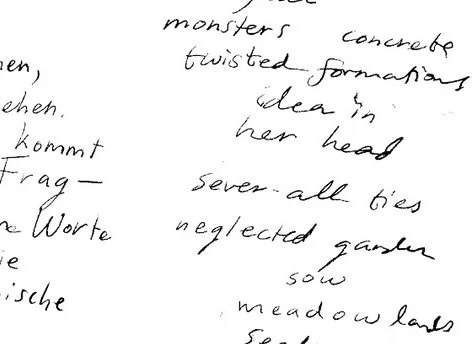 monsters concrete
twisted formations
idea in
her head
sever all ties
neglected garden
sow
meadowlands
kommt
Frag—
Worte